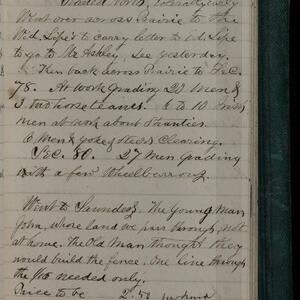 Went over across Prairie to the
W'd Life's to carry letter to
to go to Mr Ashley, See yesterday.
Then back across Prairie to Sec.
78. At work grading 20 men &
3 two horse teams. 6 to 10 Irish
men at work about Shanties.
6 Men & yoke of steers Clearing.
Sec. 80. 27 Men grading
with a few Wheelbarrows.
Went to Saunders. The Young Man
John, whose land we pass through, not
at home. The Old Man thought they
would build the fence. One line through
the needed only.
Price to be